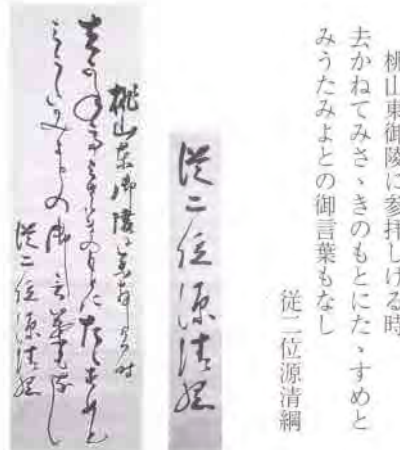 桃山東御陵に参拝しける時
去かねてみさゝきのもとにたゝすめと
みうたみよとの御言葉もなし
従二位源清綱
従二位源清綱
桃山東御陵に参拝しける時
去かねてみさゝきのもとにたゝすめと
みうたみよとの御言葉もなし
従二位源清綱